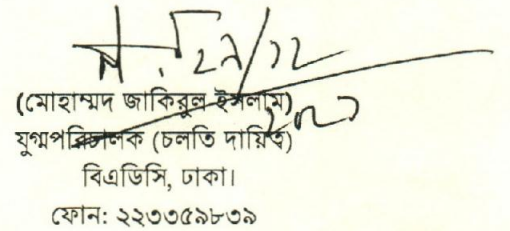 ২৯/১২
(মোহাম্মদ জাকিরুল ইসলাম)
যুগ্মপরিচালক (চলতি দায়িত্ব)
বিএডিসি, ঢাকা।
ফোন: ২২৩৩৫৯৮৩৯